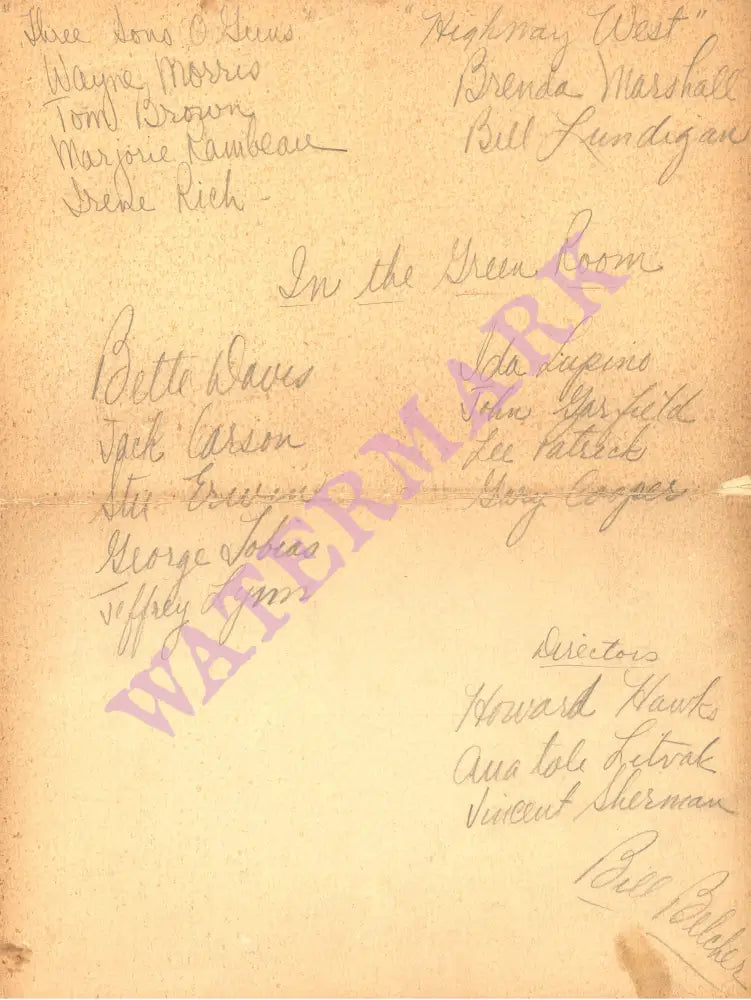 "Three Sons O Guns"
Wayne Morris
Tom Brown
Marjorie Rambeau
Irene Rich -
"Highway West"
Brenda Marshall
Bill Lundigan
In the Green Room
Bette Davis
Jack Carson
Stu Erwin
George Tobias
Jeffrey Lynn
Ida Lupino
John Garfield
Lee Patrick
Gary Cooper
Directors
Howard Hawks
Anatole Litvak
Vincent Sherman
Bill Belcher
WATERMARK